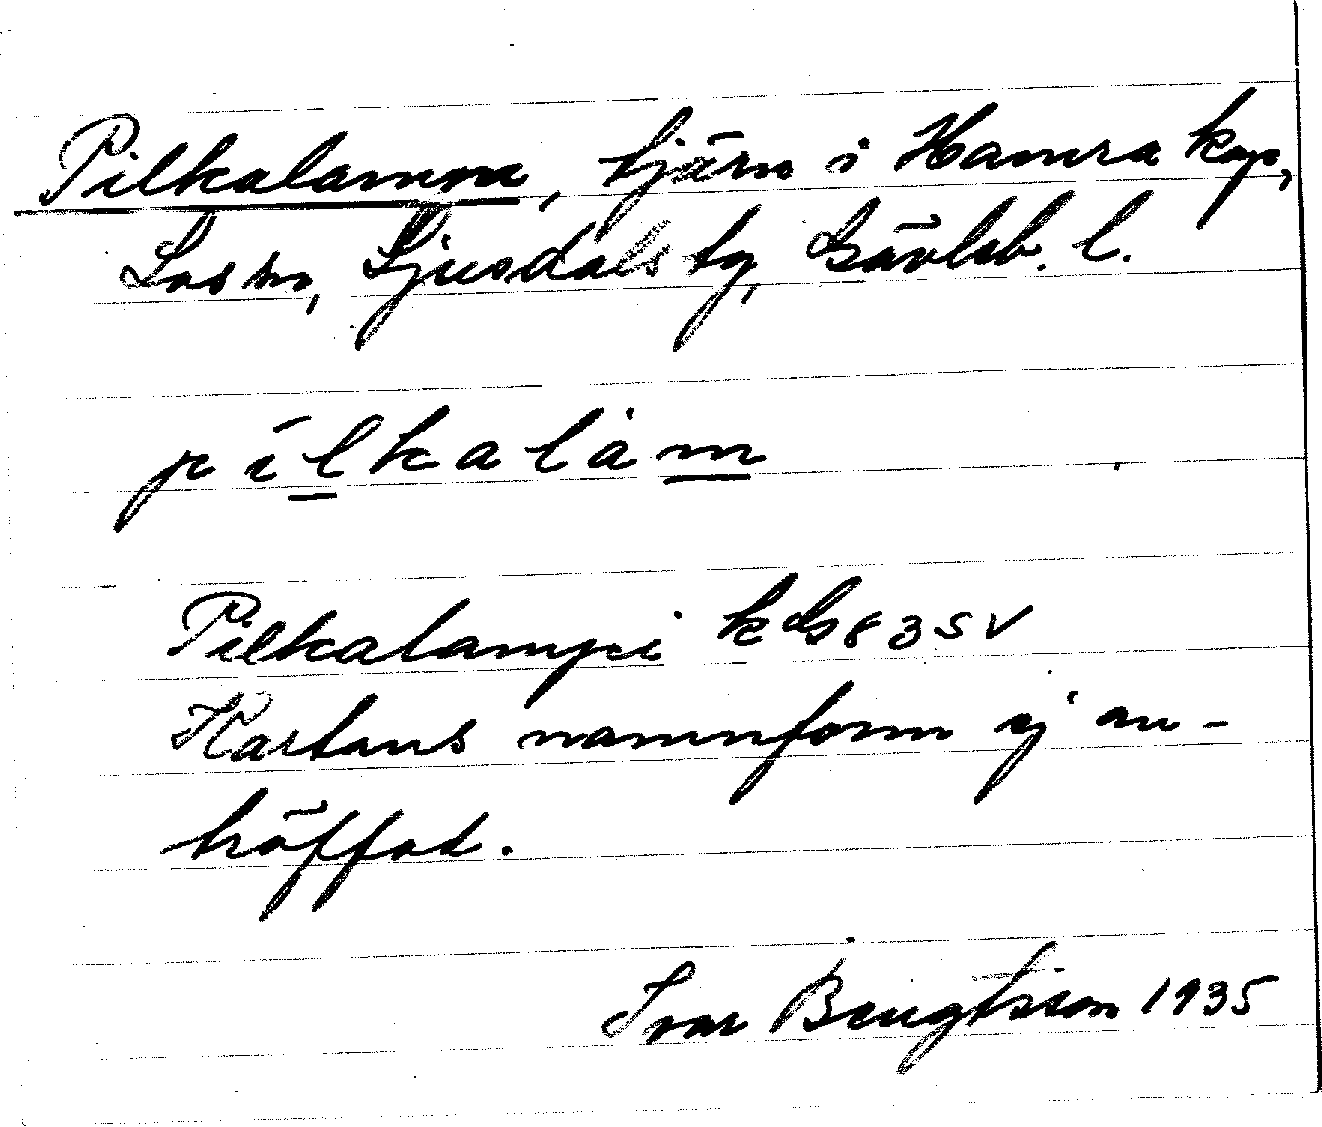 Pilkalamm, tjärn i Hamra kap,
Los sn, Ljusdals tg, Gävleb. l.
pílkalàm
Pilkalampi k bl 83 SV
Kartans namnform ej an-
träffad.
Ivar Bengtsson 1935